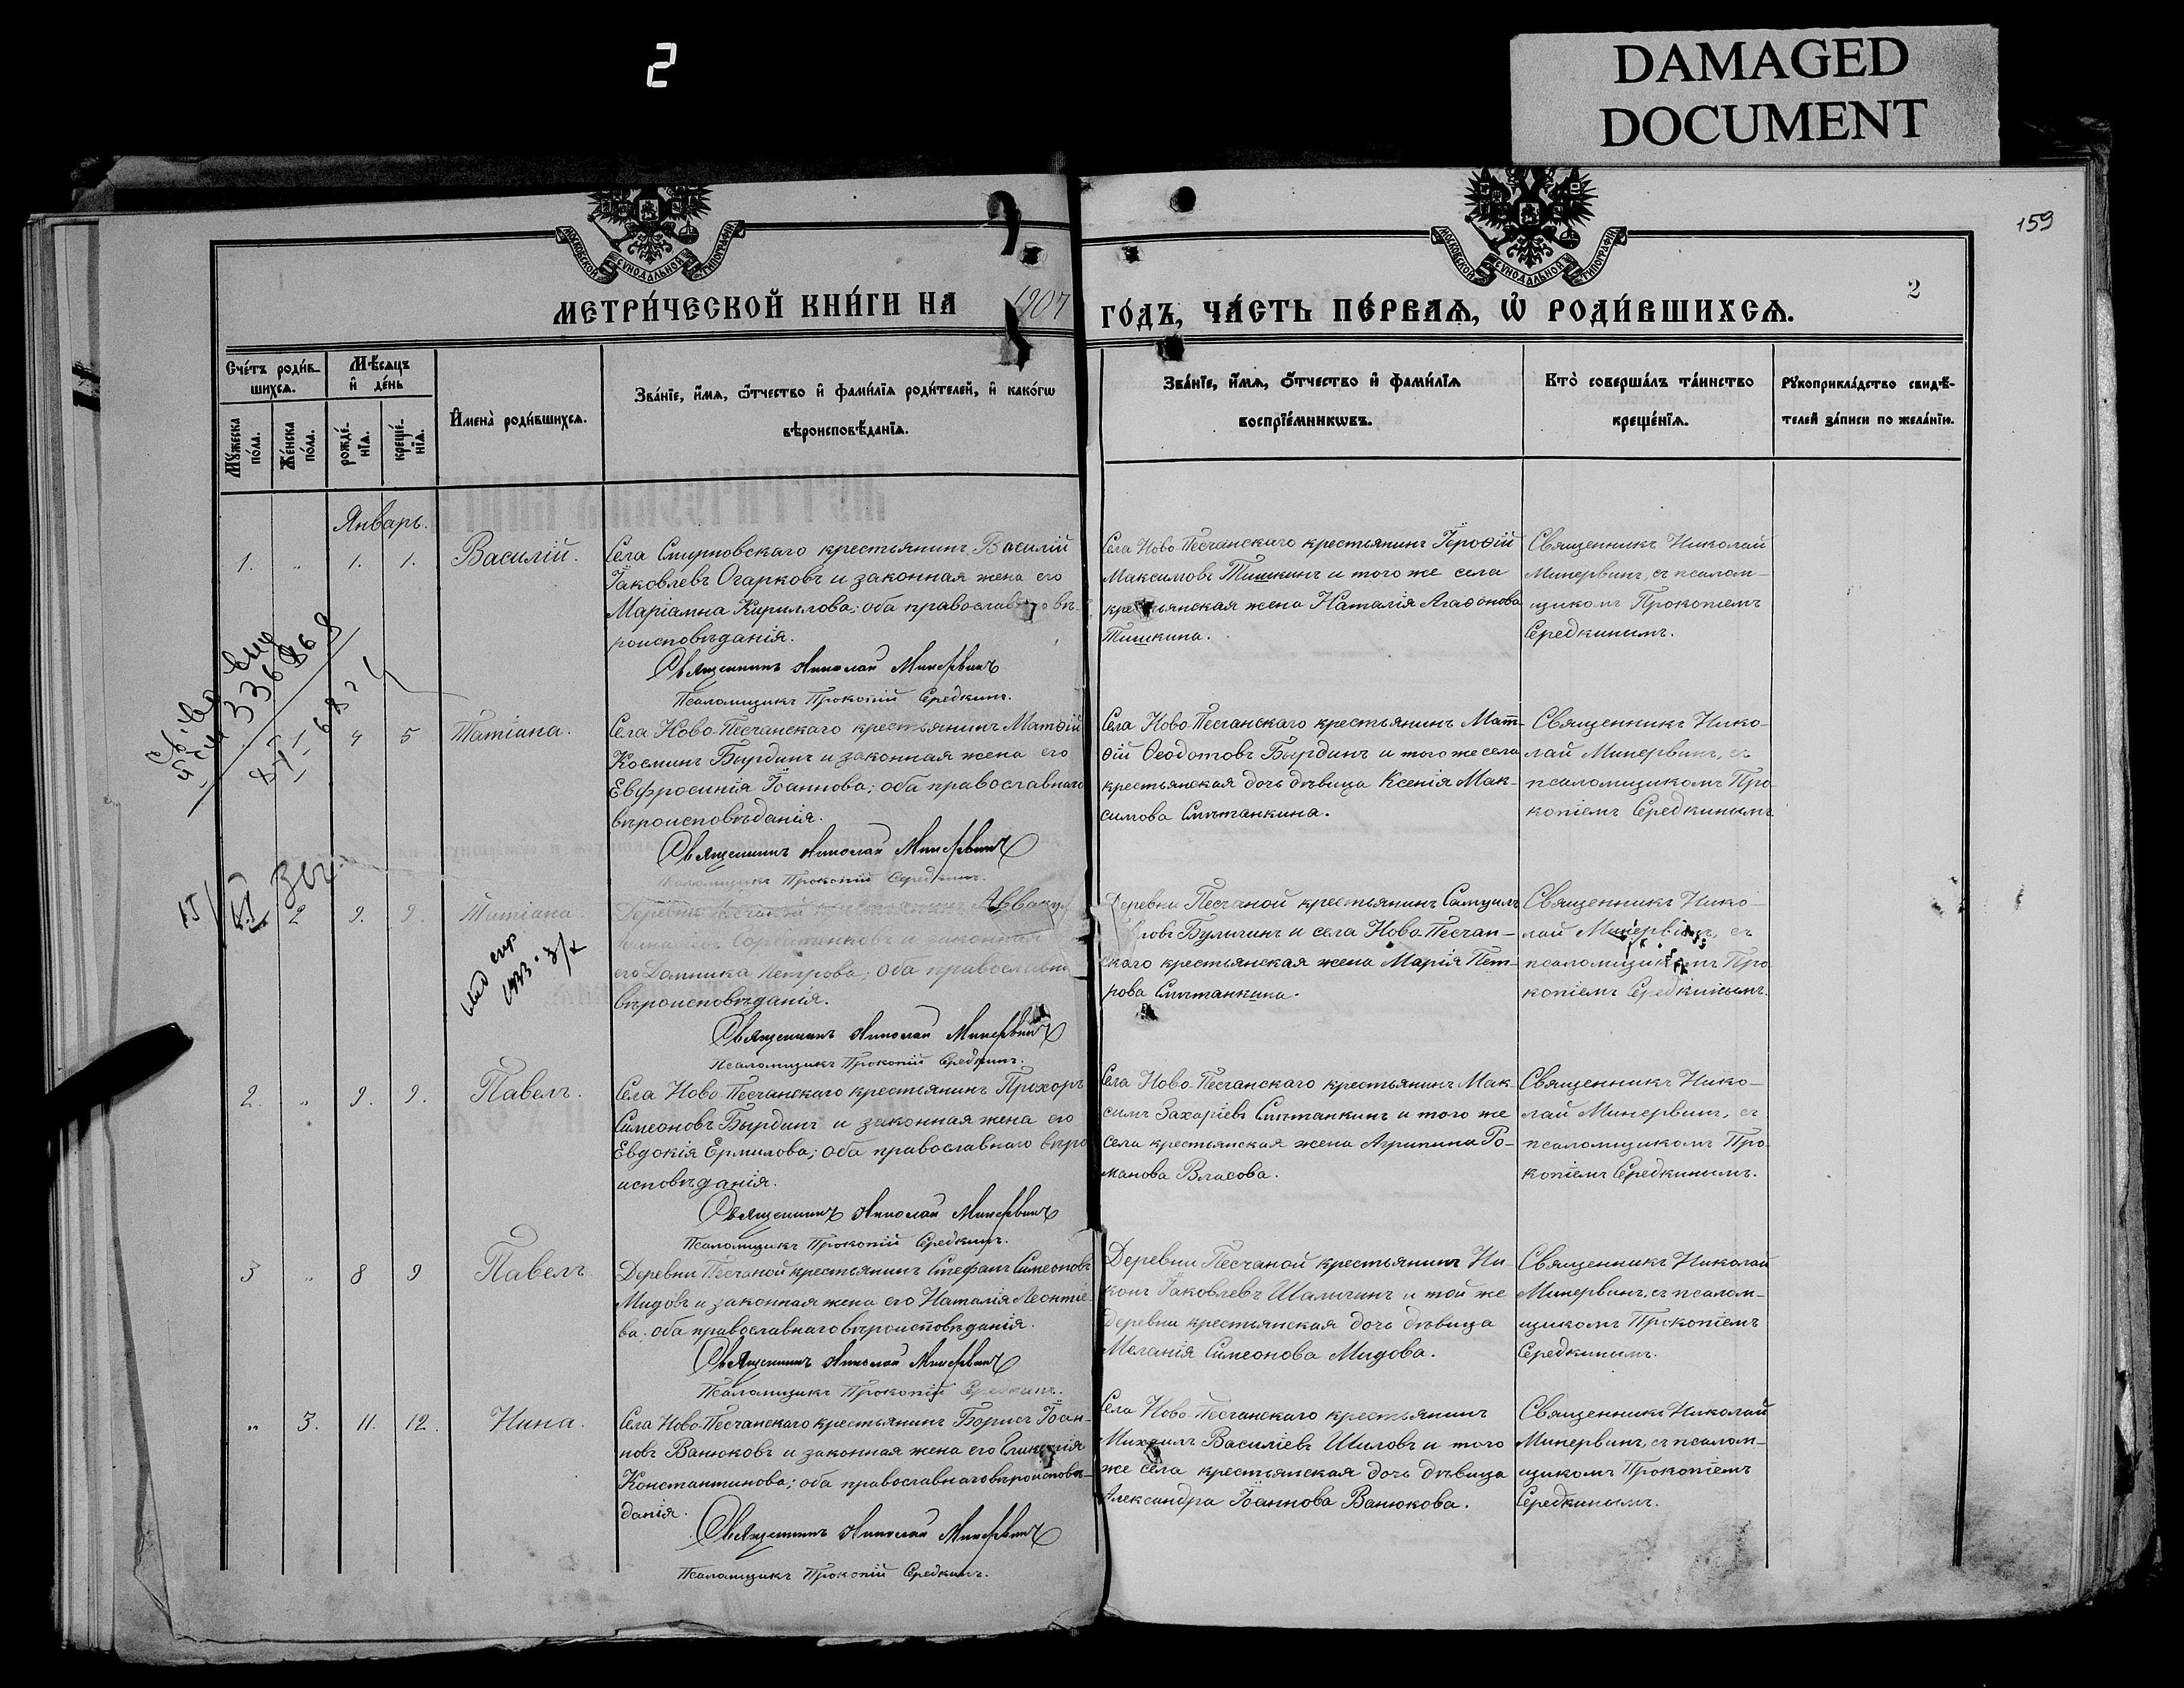 2
DAMAGED
DOCUMENT
159
МОСКОВСКОЙ СѴНОДАЛЬНОЙ ТИПОГРАФІИ
МОСКОВСКОЙ СѴНОДАЛЬНОЙ ТИПОГРАФІИ
МЕТРИ́ЧЕСКОЙ КНИ́ГИ НА 1907
ГО́ДЪ, ЧА́СТЬ ПЕ́РВАѦ, Ѡ҆ РОДИ́ВШИХСѦ.
2
Сче́тъ роди́в-
шихсѧ.
Мѣ́сѧцъ
и҆ де́нь
Мꙋ́жеска
по́ла.
Же́нска
по́ла.
рожде́-
нїѧ.
креще́-
нїѧ.
И҆мена̀ роди́вшихсѧ.
Зва́нїе, и҆́мѧ, ѻ҆́тчество и҆ фами́лїѧ роди́телей, и҆ како́гѡ
вѣроисповѣ́данїѧ.
Зва́нїе, и҆́мѧ, ѻ҆́тчество и҆ фами́лїѧ
воспрїе́мникѡвъ.
Кто̀ соверша́лъ та́инство
креще́нїѧ.
Рꙋкоприкла́дство свидѣ́-
телей за́писи по жела́нїю.
Январь.
1. „ 1. 1. Василій.
Села Смирновскаго крестьянинъ Василій
Іаковлевъ Огарковъ и законная жена его
Маріамна Кириллова; оба православнаго вѣ-
роисповѣданія.
Священникъ Николай Минервинъ
Псаломщикъ Прокопій Середкинъ.
Села Ново-Песчанскаго крестьянинъ Іероѳій
Максимовъ Тишкинъ и того же села
крестьянская жена Наталія Агаѳонова
Тишкина.
Священникъ Николай
Минервинъ, съ псалом-
щикомъ Прокопіемъ
Середкинымъ.
„ 1 4 5 Татіана.
Села Ново-Песчанскаго крестьянинъ Матѳій
Косминъ Бырдинъ и законная жена его
Евфросинія Іоаннова; оба православнаго
вѣроисповѣданія.
Священникъ Николай Минервинъ
Псаломщикъ Прокопій Середкинъ.
Села Ново-Песчанскаго крестьянинъ Мат-
ѳій Ѳеодотовъ Бырдинъ и того же села
крестьянская дочь дѣвица Ксенія Мак-
симова Смѣтанкина.
Священникъ Нико-
лай Минервинъ, съ
псаломщикомъ Про-
копіемъ Середкинымъ.
2 9. 9. Татіана.
Деревни Песчаной крестьянинъ Аввакум
и законная
его Домника Петрова; оба православна
вѣроисповѣданія.
Священникъ Николай Минервинъ
Псаломщикъ Прокопій Середкинъ.
Деревни Песчаной крестьянинъ Самуилъ
Булыгинъ и села Ново-Песчан-
скаго крестьянская жена Марія Пет-
рова Смѣтанкина.
Священникъ Нико-
лай Минервинъ, съ
псаломщикомъ Про-
копіемъ Середкинымъ.
2. „ 9. 9. Павелъ.
Села Ново-Песчанскаго крестьянинъ Прохоръ
Симеоновъ Бырдинъ и законная жена его
Евдокія Ермилова; оба православнаго вѣро
исповѣданія.
Священникъ Николай Минервинъ
Псаломщикъ Прокопій Середкинъ.
Села Ново-Песчанскаго крестьянинъ Мак-
симъ Захаріевъ Смѣтанкинъ и того же
села крестьянская жена Агрипина Ро-
манова Власова.
Священникъ Нико-
лай Минервинъ, съ
псаломщикомъ Про-
копіемъ Середкинымъ.
3 „ 8 9 Павелъ.
Деревни Песчаной крестьянинъ Стефанъ Симеоновъ
Мидовъ и законная жена его Наталія Леонтіе-
ва. оба православнаго вѣроисповѣданія.
Священникъ Николай Минервинъ
Псаломщикъ Прокопій Середкинъ.
Деревни Песчаной крестьянинъ Ни-
конъ Іаковлевъ Шалыгинъ и той же
деревни крестьянская дочь дѣвица
Меланія Симеонова Мидова.
Священникъ Николай
Минервинъ, съ псалом-
щикомъ Прокопіемъ
Середкинымъ.
„ 3. 11. 12. Нина.
Села Ново-Песчанскаго крестьянинъ Борисъ Іоан-
новъ Ванюковъ и законная жена его Гликерія
Константинова; оба православнаго вѣроисповѣ-
данія.
Священникъ Николай Минервинъ
Псаломщикъ Прокопій Середкинъ.
Села Ново-Песчанскаго крестьянинъ
Михаилъ Василіевъ Шиловъ и того
же села крестьянская дочь дѣвица
Александра Іоаннова Ванюкова.
Священникъ Николай
Минервинъ, съ псалом-
щикомъ Прокопіемъ
Середкинымъ.